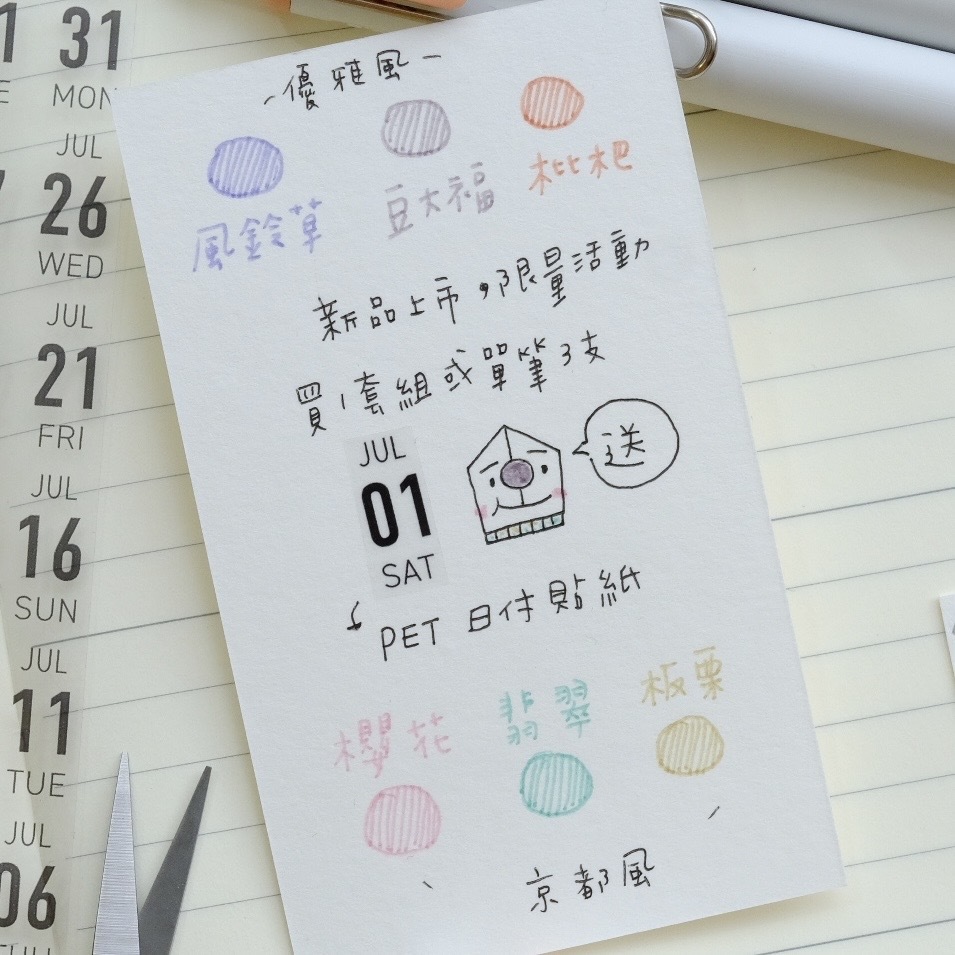 31
MON
JUL
26
WED
JUL
21
FRI
JUL
16
SUN
JUL
11
TUE
JUL
06
-優雅風-
風鈴草 豆大福 枇杷
新品上市,限量活動
買1套組或單筆3支
JUL
01
SAT
送
PET 日付貼紙
櫻花 翡翠 板栗
京都風